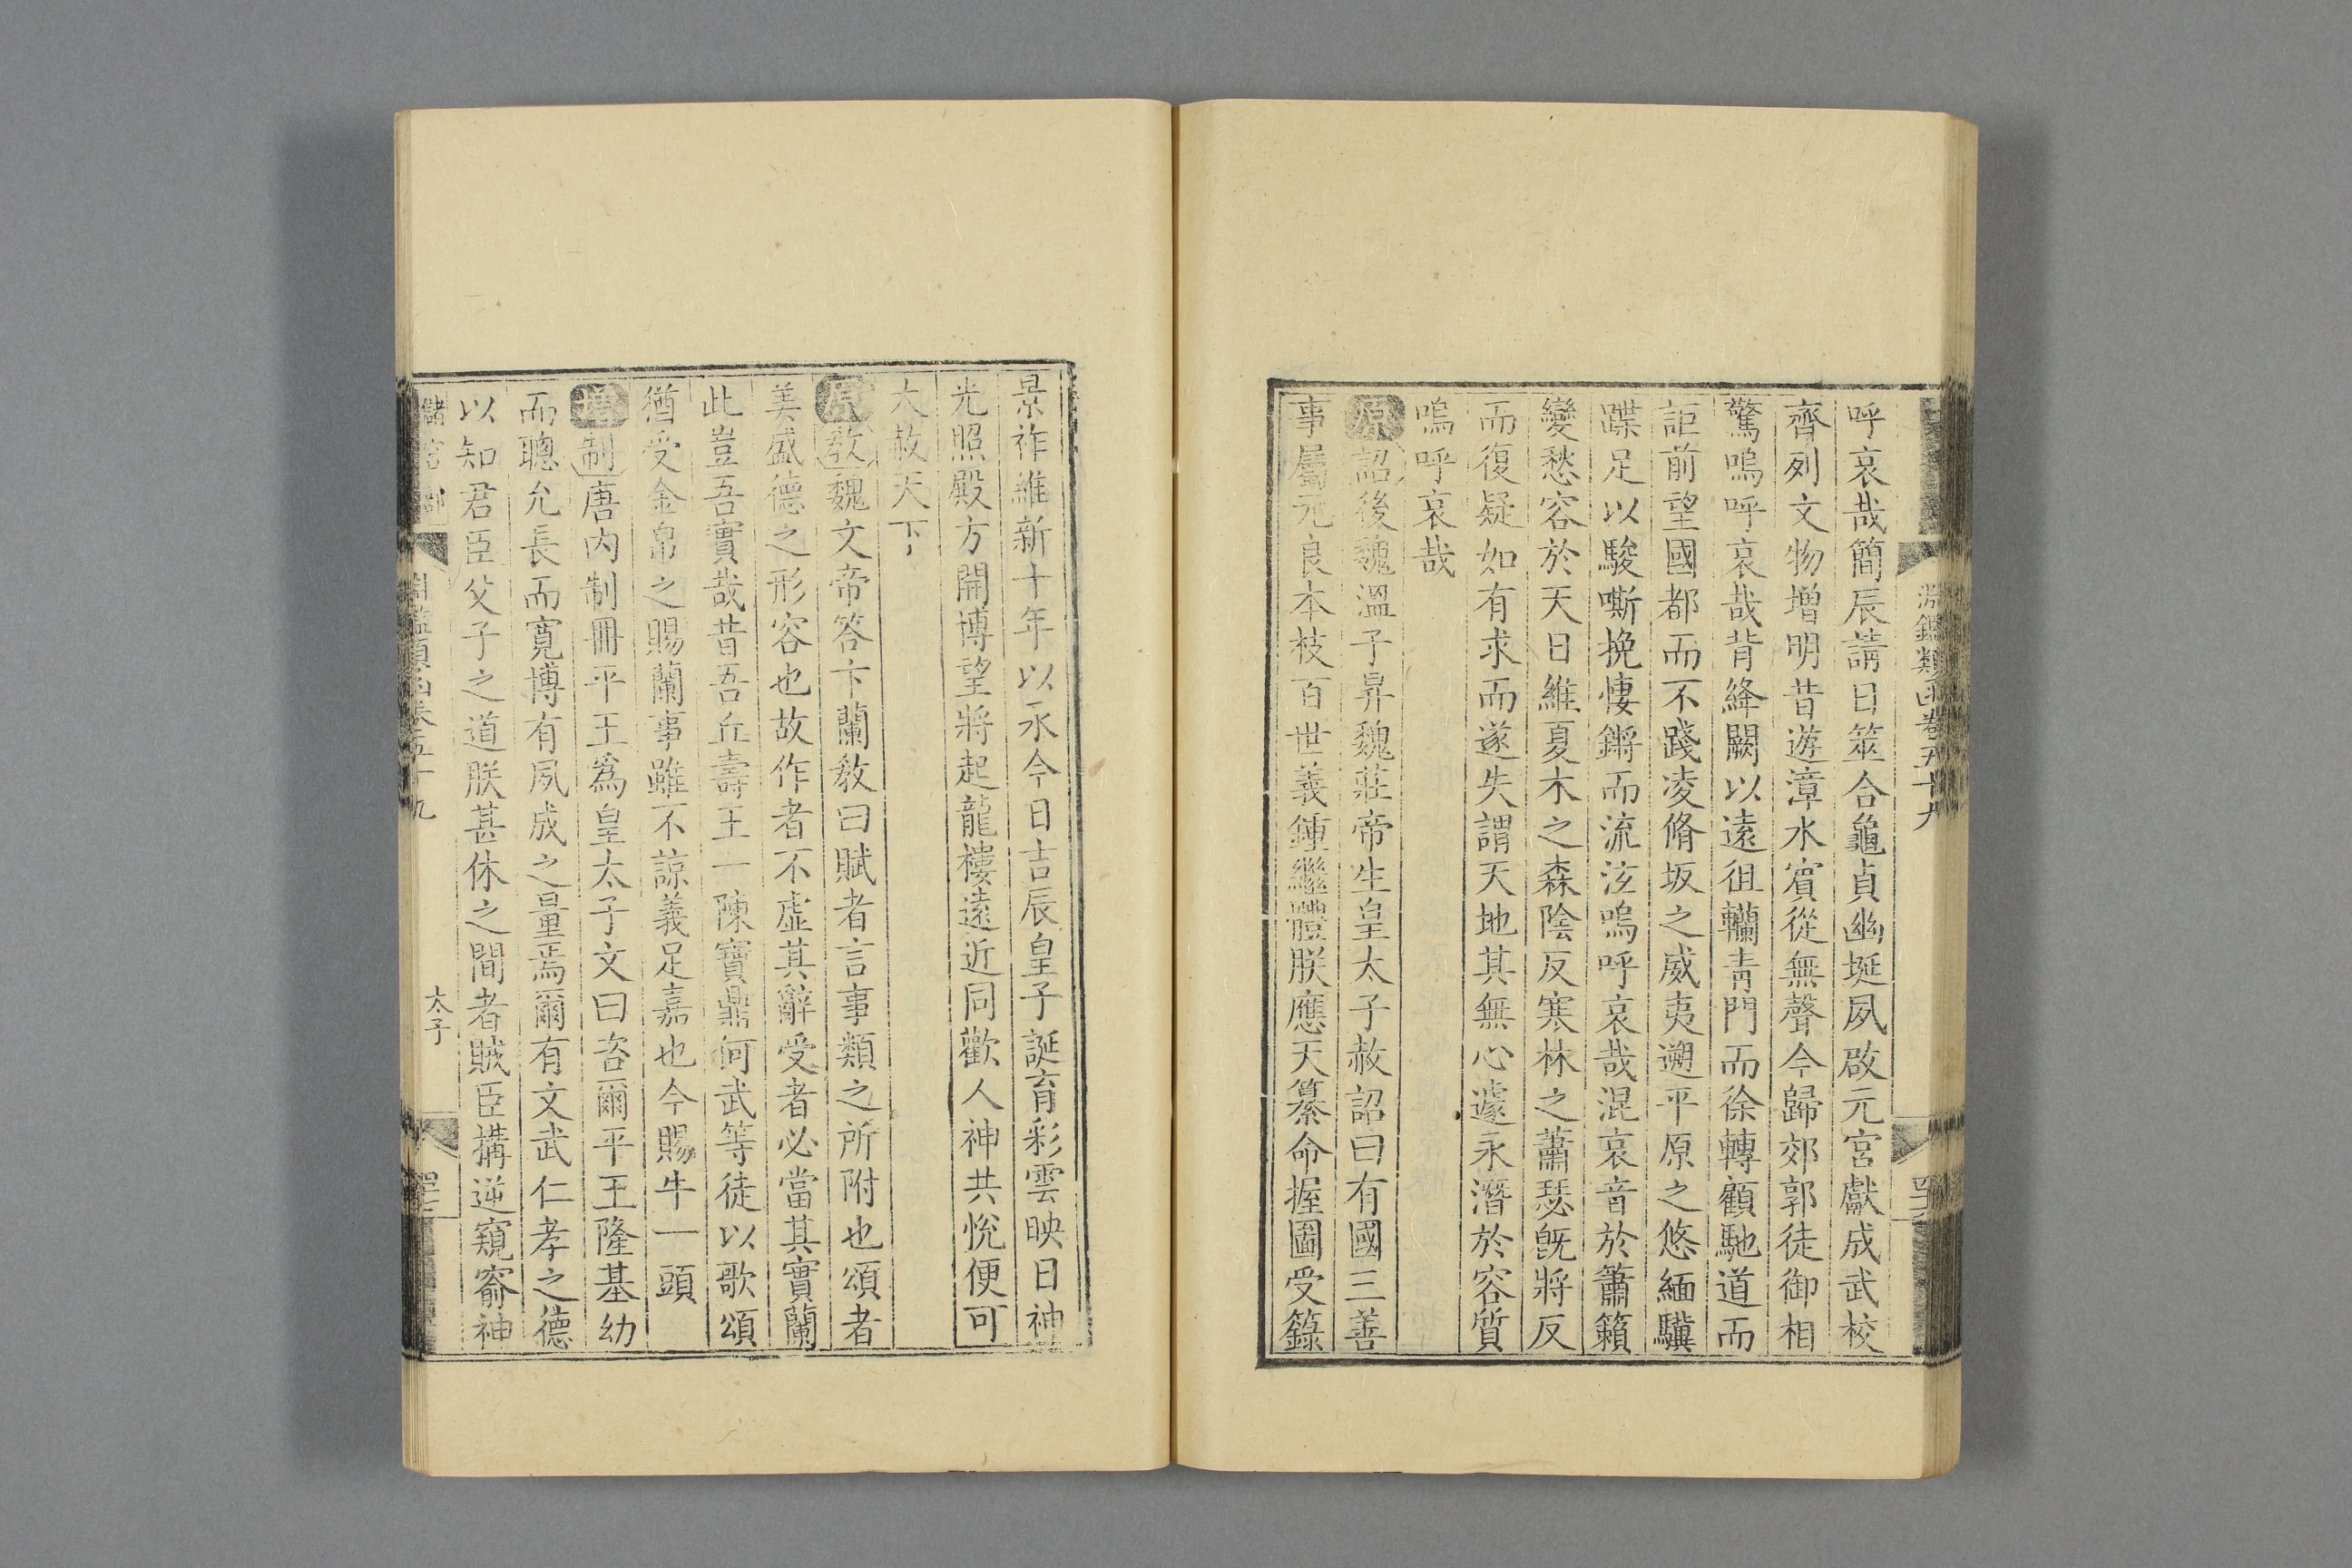 淵鑑類函卷五十九
呼哀哉簡辰請日筮合龜貞幽埏夙啟元宮獻成武校
齊列文物增明昔遊漳水賓從無聲今歸郊郭徒御相
驚嗚呼哀哉背絳闕以遠徂轥青門而徐轉顧馳道而
詎前望國都而不踐凌脩坂之威夷遡平原之悠緬驥
蹀足以駿嘶挽悽鏘而流泫嗚呼哀哉混哀音於簫籟
變愁容於天日維夏木之森陰反寒林之蕭瑟旣將反
而復疑如有求而遂失謂天地其無心遽永潛於容質
嗚呼哀哉
原詔後魏溫子昇魏莊帝生皇太子赦詔曰有國三善
事屬元良本枝百世義鍾繼體朕應天纂命握圖受籙
景祚維新十年以永今日吉辰皇子誕育彩雲映日神
光照殿方開博望將起龍樓遠近同歡人神共悅便可
大赦天下
原教魏文帝答卞蘭敎曰賦者言事類之所附也頌者
美盛德之形容也故作者不虛其辭受者必當其實蘭
此豈吾實哉昔吾丘壽王一陳寶鼎何武等徒以歌頌
猶受金帛之賜蘭事雖不諒義足嘉也今賜牛一頭
增制唐内制冊平王爲皇太子文曰咨爾平王隆基幼
而聰允長而寬博有夙成之量焉爾有文武仁孝之德
以知君臣父子之道朕甚休之間者賊臣搆逆窺窬神
儲宮部 淵鑑類函卷五十九 太子